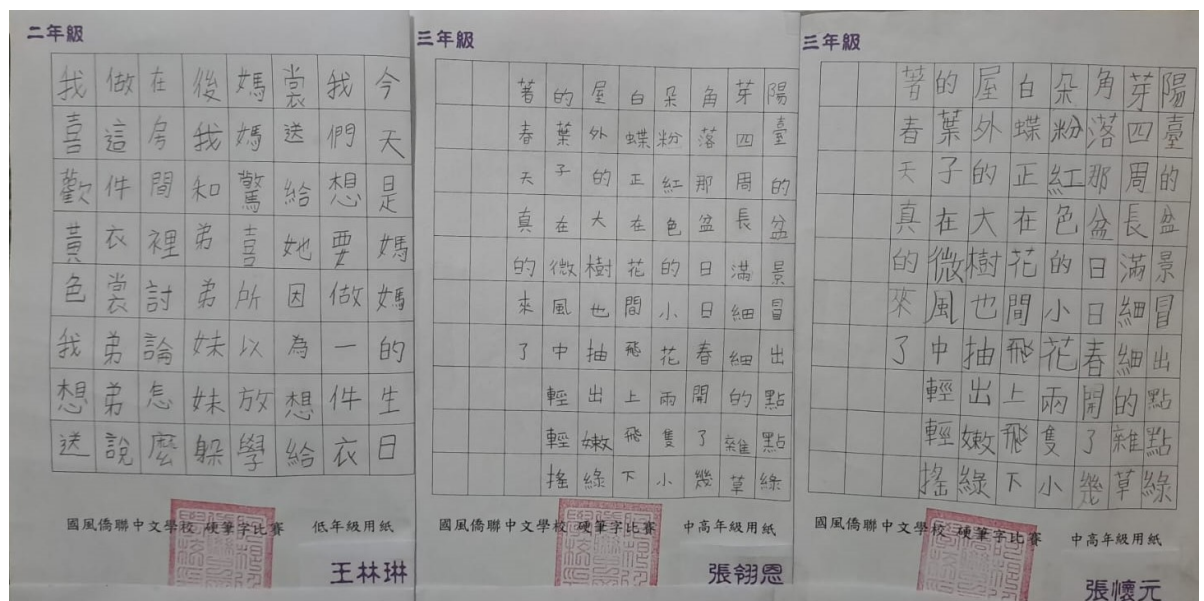 二年級
今天是媽媽的生日
我們想要做一件衣
裳送給她因為想給
媽媽驚喜所以放學
後我和弟弟妹妹躲
在房間裡討論怎麼
做這件衣裳弟弟說
我喜歡黃色我想送
國風僑聯中文學校 硬筆字比賽 低年級用紙
王林琳
三年級
陽臺的盆景冒出點點綠
芽四周長滿細細的雜草
角落那盆日日春開了幾
朵粉紅色的小花兩隻小
白蝶正在花間飛上飛下
屋外的大樹也抽出嫩綠
的葉子在微風中輕輕搖
著春天真的來了
國風僑聯中文學校 硬筆字比賽 中高年級用紙
張翎恩
三年級
陽臺的盆景冒出點點綠
芽四周長滿細細的雜草
角落那盆日日春開了幾
朵粉紅色的小花兩隻小
白蝶正在花間飛上飛下
屋外的大樹也抽出嫩綠
的葉子在微風中輕輕搖
著春天真的來了
國風僑聯中文學校 硬筆字比賽 中高年級用紙
張懷元